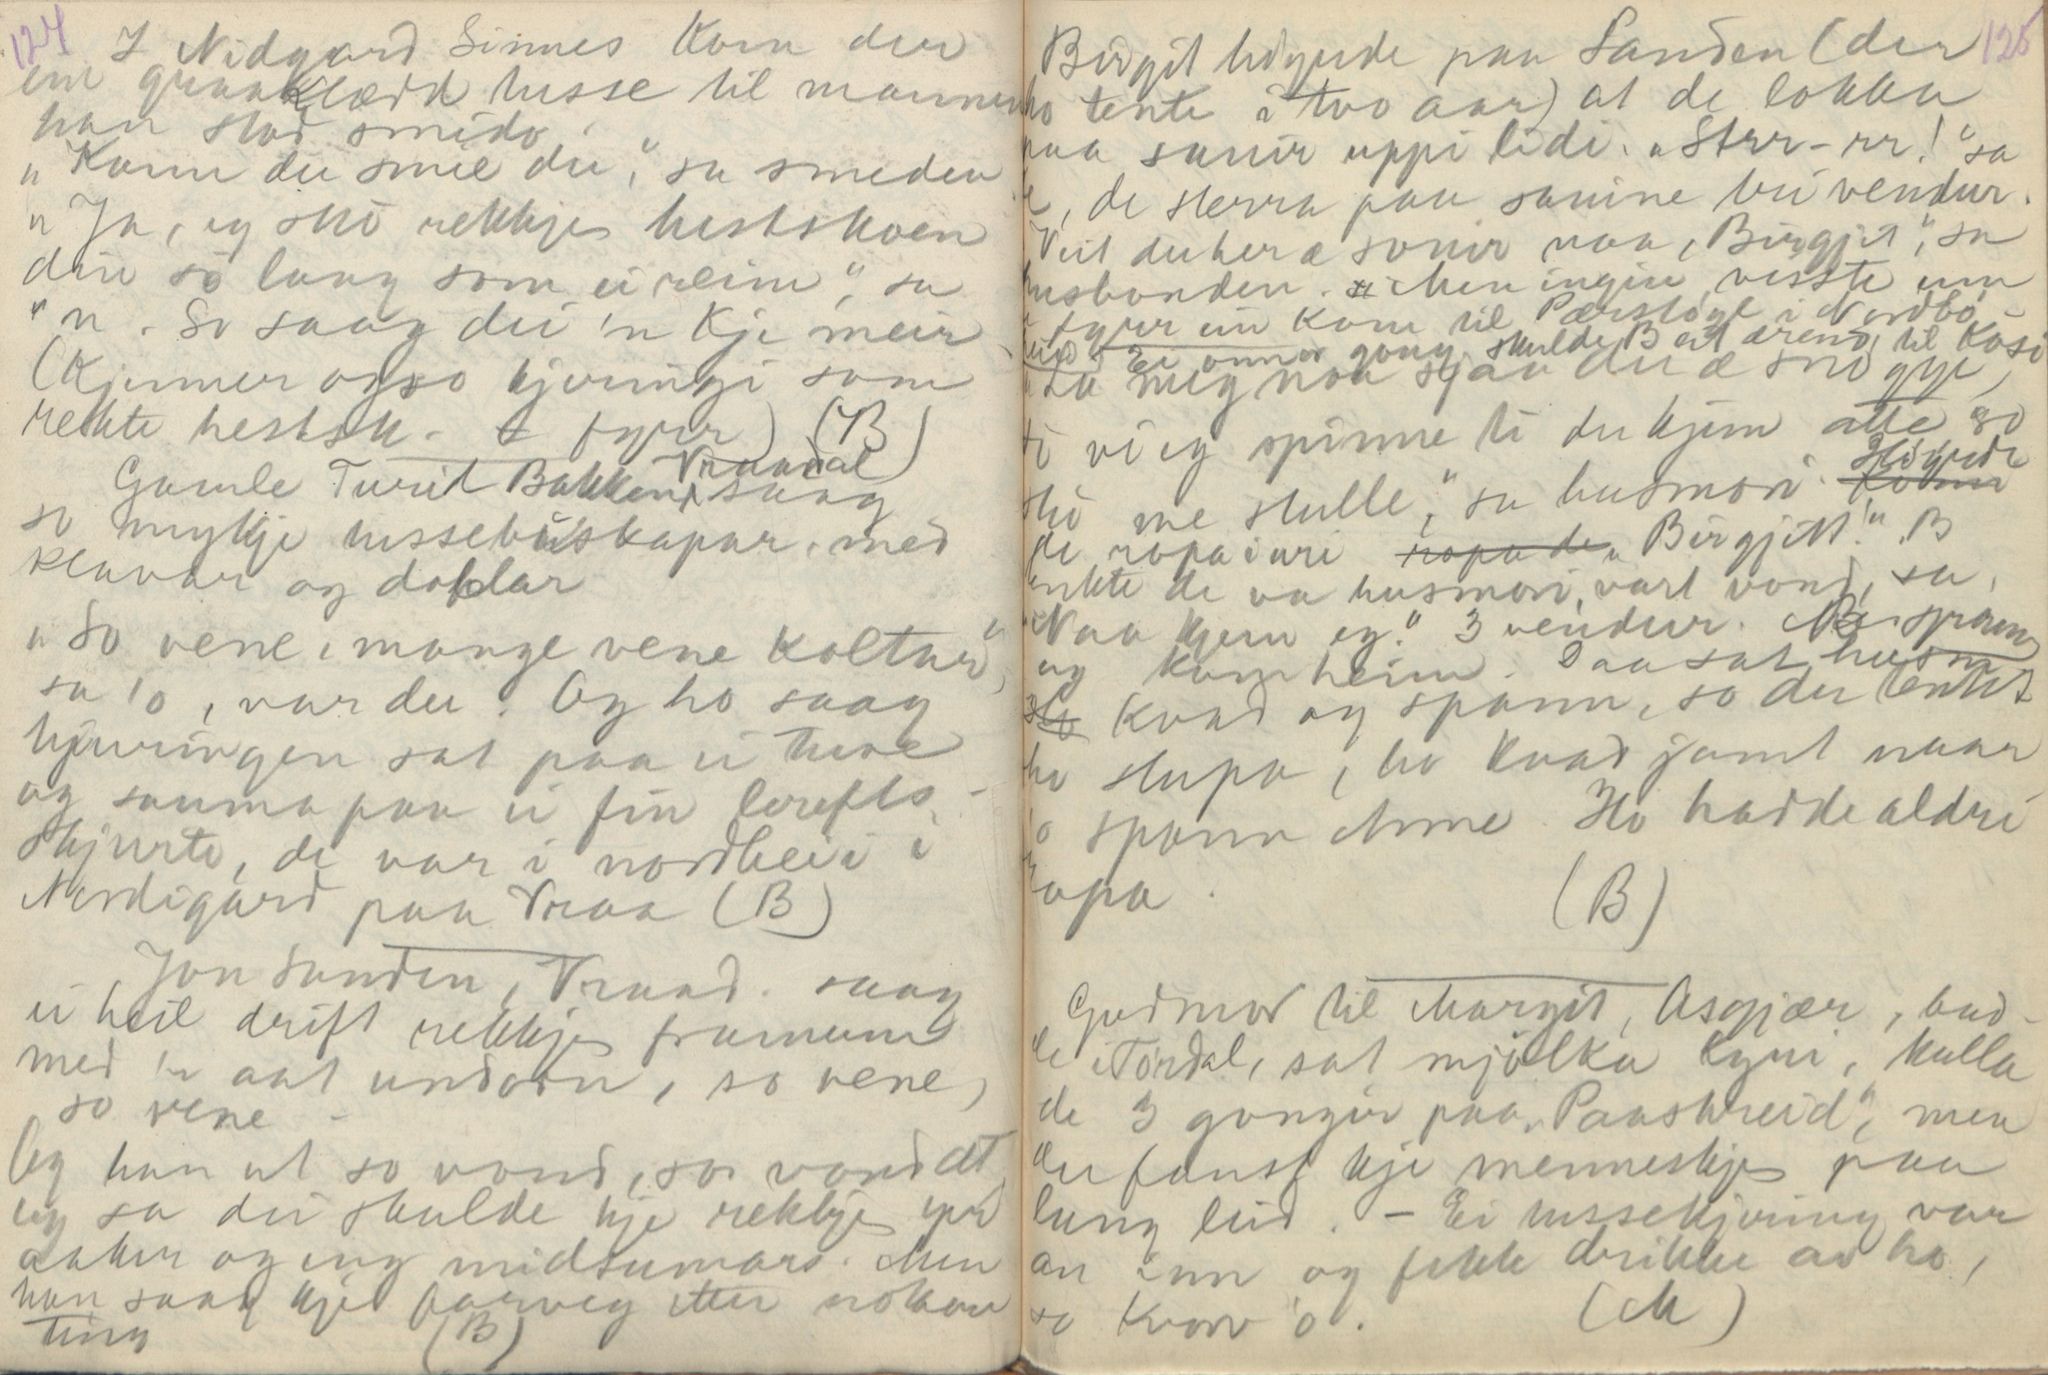 124
I Nidgard Sinnes kom der
ein graaklædd tusse til mannen
han stod smido.
"Kann du smie du," sa smeden
"Ja, eg ski rekkje hestskoen
din so lang som ei reim," sa
'n. So saag dei 'n kje meir
(Kjenner ogso kjeringi som
rekte hestsk. fyrr) (B)
Gamle Turid Bakken, Vraadal saag
so mykje tussebuskapar, med
klavar og doblar
"So vene, mange vene koltar",
sa 'o, var dei. Og ho saag
kjeringen sat paa ei tuve
og sauma paa ei fin lerefts-
skjurte, de var i nordheii i
Nordigard paa Vraa (B)
Jon Sanden, Vraad. saag
ei heil drift rekkje framum
med 'n aat undorn, so vene,
so vene -
Og han ut so vond, so vond at
og sa dei skulde kje rekkje yvi
aaker og eng midsumars. Men
han saag kje farveg etter nokon
ting (B)
125
Birgit høyrde paa Sanden (der
ho tente i tvo aar) at de lokka
paa sauir uppi lidi. "Strr-rr!" sa
de, de sterra paa sauine tri vendur.
Veit du her æ sauir naa, Birgjit," sa
husbonden. Men ingin visste um
fyrr ein kom til Pærstøyl i Nordbø
Ei onnor gong skulde B eit ærend til Kosi
"La meg naa sjaa du æ snøgge,
so vi eg spinne ti du kjem atte so
ski me stulle," sa husmori. Høyrde
de ropa i uri ropa de "Birgjitt!" B
tenkte de va husmori, vart vond, sa,
"Naa kjem eg." 3 vendur. B sprang
og kom heim. Daa sat husm
Ho kvad og spann, so der tenkte
ho stupa, ho kvad jamt naar
'o spann Anne. Ho hadde aldri
ropa. (B)
Godmor til Margit, Asgjær, bud-
de i Tørdal, sat mjølka kyni, kalla
de 3 gongir paa "Paaskreid", men
der fanst kje menneskje paa
lang leid. - Ei tussekjering var
an inn og fekk drikke av ho,
so kvarv 'o. (M)